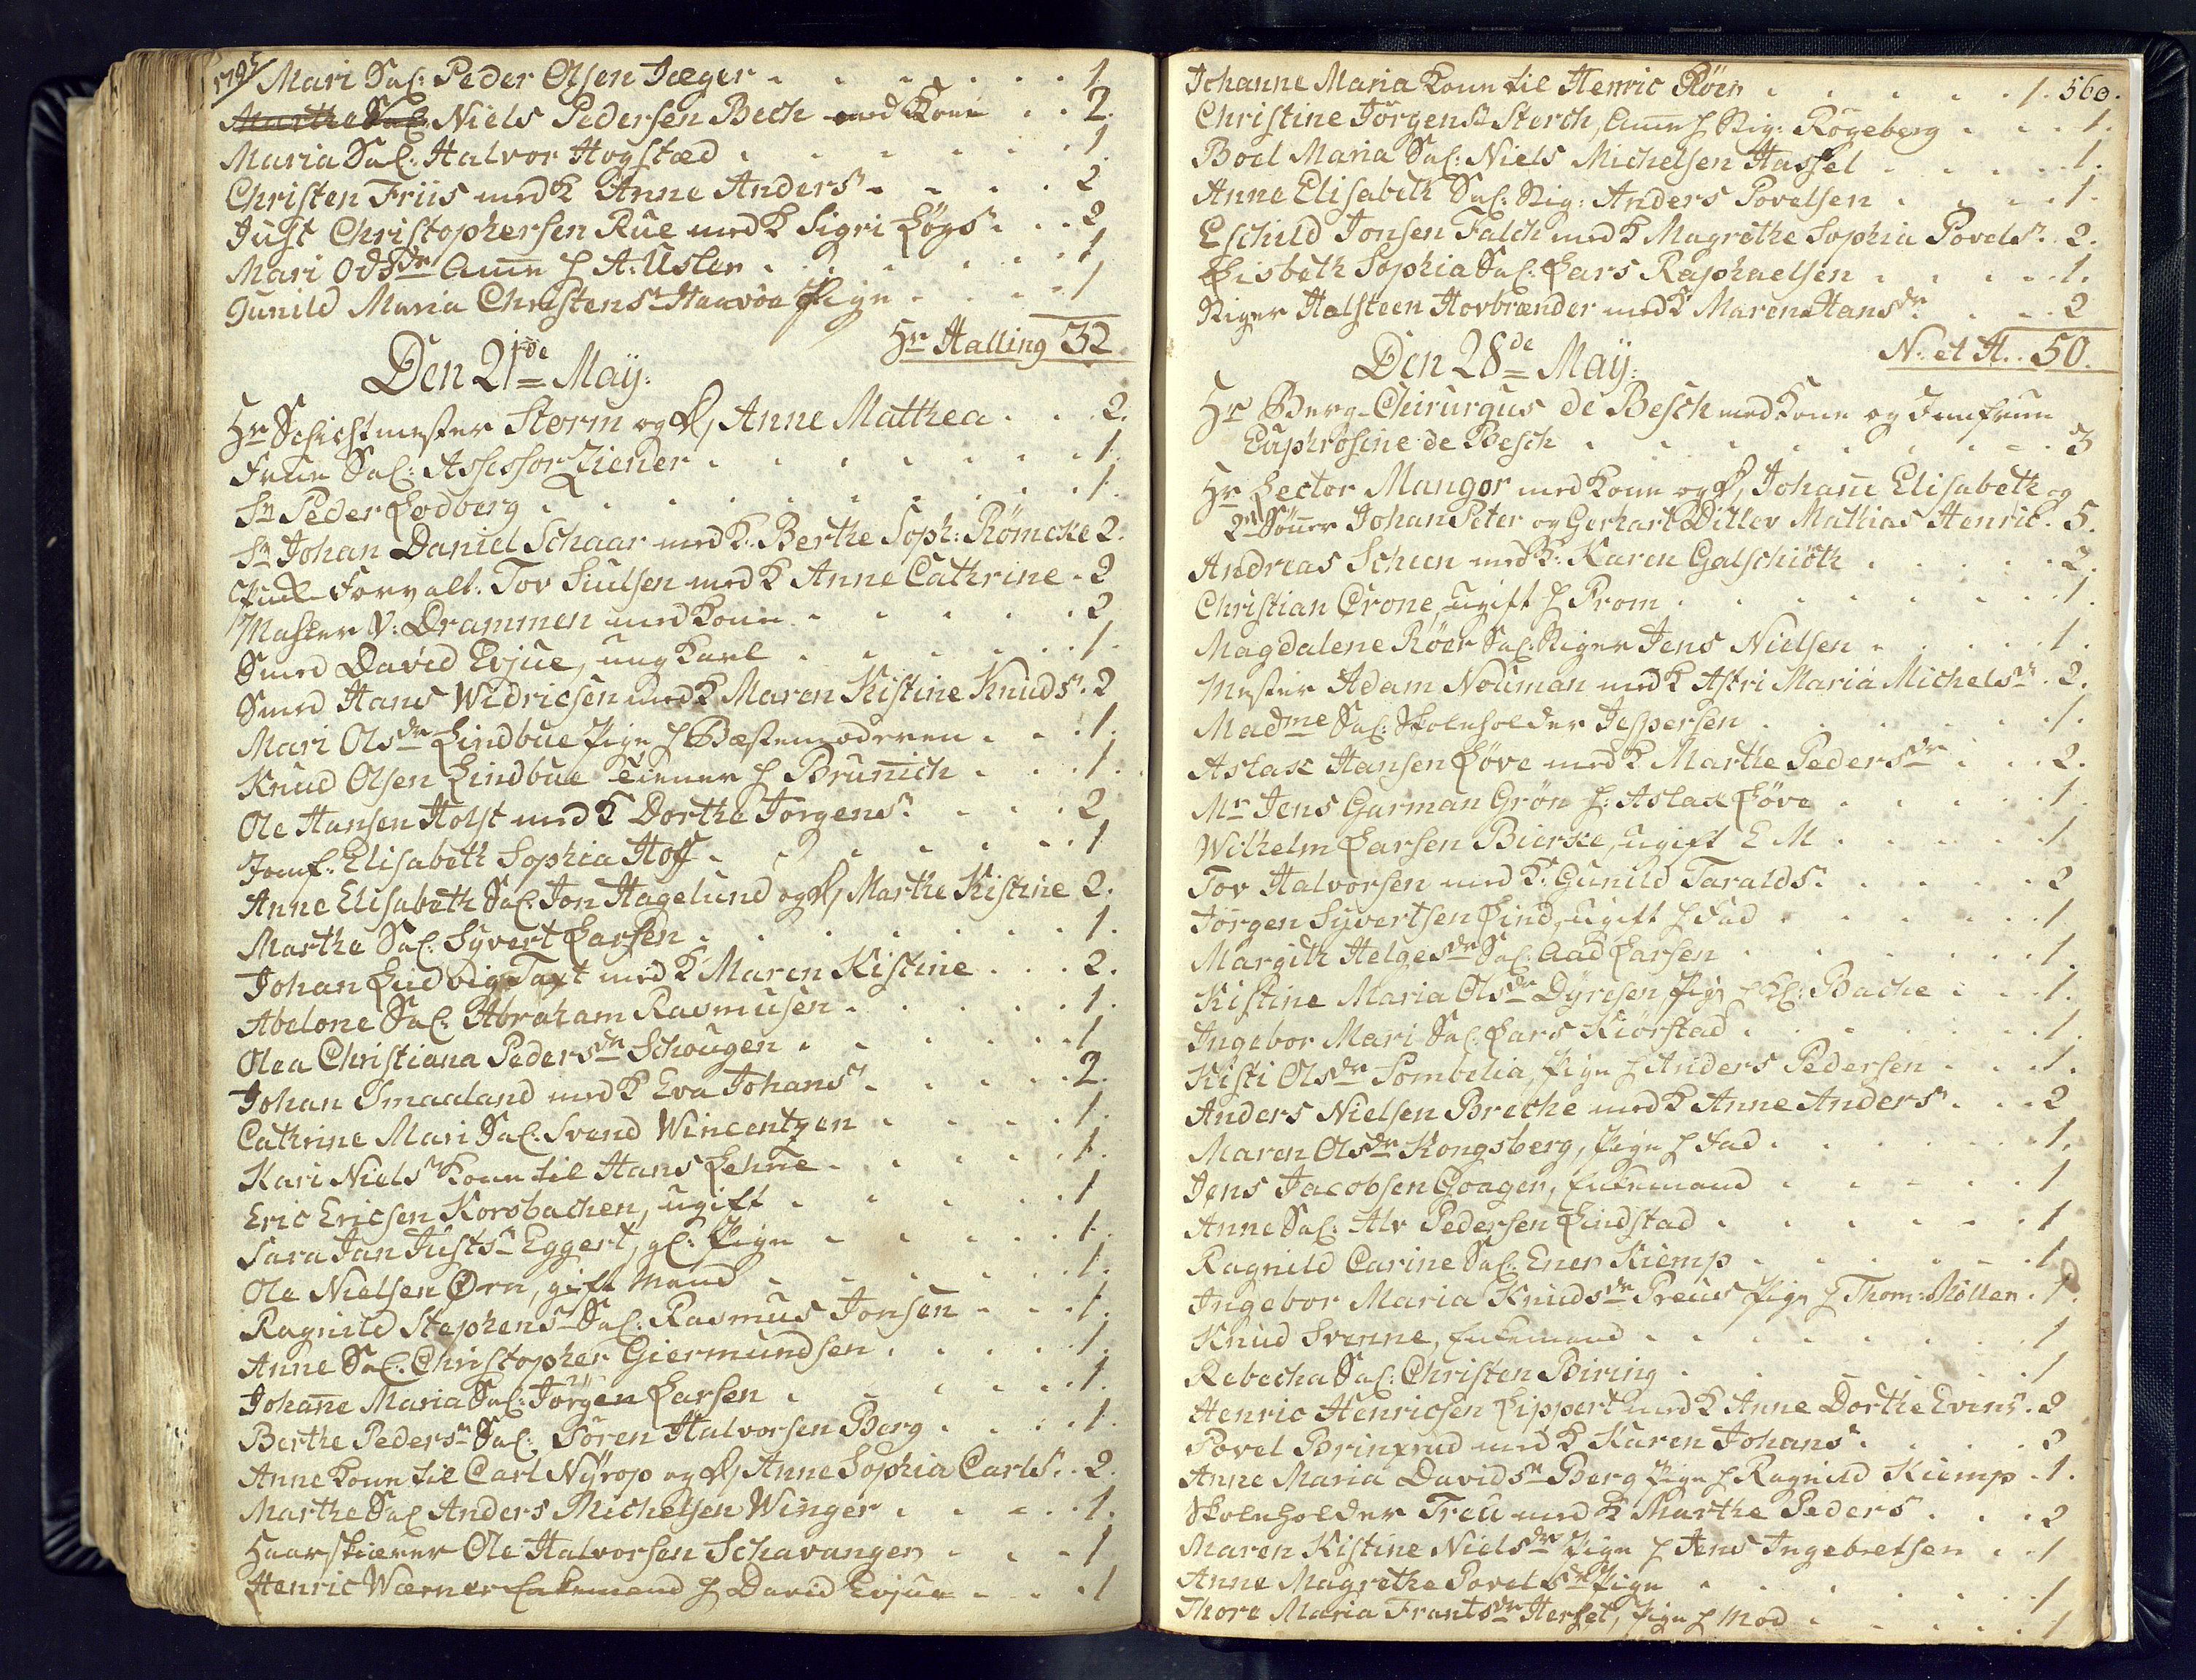 1797
Mari Sal: Peder Olsen Jæger . . . . . . 1.
Marthe Sal: Niels Pedersen Bech med Kone . . 2.
Maria Sal: Halvor Hogstad . . . . . . 1
Christen Friis med K Anne Anders . . . . 2
Just Christophersen Rue med K Sigri Løgs . . . 2
Mari Odsdr Ame h A: Usler . . . . . . 1
Gunild Maria Christens Haavoe Pige . . . . 1
Hr Halling 32
Den 21de Maÿ:
Hr Schichtmester Storm og D, Anne Matthea . . . 2.
Frue Sal: Assessor Ziener . . . . . . . 1.
Sr Peder Lodberg . . . . . . . . . 1.
Sr Johan Daniel Schaar med K. Berthe Soph: Römcke 2.
Forvalt. Tov Juulsen med K Anne Cathrine . 2
Masker V: Drammen med Kone . . . . . 2
Smed David Evjue, ung Karl . . . . . . 1.
Smed Hans Widricsen med K Maren Kistine Knuds . 2
Mari Olsdr Lindbue Pige h Bæstemoderen . . . 1.
Knud Olsen Lindbue tiener h Brunich . . . 1.
Ole Hansen Holst med K Dorthe Jörgens . . . . 2
Jomf: Elisabeth Sophia Hoff . . . . . . . 1
Anne Elisabeth Sal: Jon Hagelund og D, Marthe Kistine 2.
Marthe Sal: Syvert Larsen . . . . . . . 1.
Johan Ludvig Taxt med K Maren Kistine . . . 2.
Abelone Sal: Abraham Rasmusen . . . . . 1.
Olea Christiana Pedersdr Schougen . . . . . 1
Johan Smaaland med K Eva Johans . . . . 2.
Cathrine Mari Sal: Svend Wincentzen . . . . 1.
Kari Niels Kone til Hans Lehne . . . . . 1.
Eric Ericsen Korsbachen, ugift . . . . . . 1
Sara Jan Justs Eggert, gl: Pige . . . . . 1.
Ole Nielsen Ørn, gift Mand . . . . . . 1.
Ragnild Stephens Sal: Rasmus Jonsen . . . 1.
Anne Sal: Christopher Giermundsen . . . . 1.
Johanne Maria Sal: Jörgen Larsen . . . . 1.
Berthe Peders Sal: Sören Halvorsen Berg . . . 1.
Anne Kone til Carl Nÿrop og D, Anne Sophia Carls . . 2.
Marthe Sal Anders Michelsen Winger . . . . 1.
Haarskiærer Ole Halvorsen Schavangen . . . 1
Henric Wærner Enkemand h David Evjue . . . 1
Johanne Maria Kone til Henric Röer . . . . . 1. 560.
Christine Jörgens Sterch, Ame h Stig: Rögeberg . . . 1.
Boel Maria Sal: Niels Michelsen Hassel . . . . 1.
Anne Elisabeth Sal: Stig: Anders Povelsen . . . . 1.
Eschild Jonsen Falch med K Magrethe Sophia Povels . 2.
Lisbeth Sophia Sal: Lars Raphaelsen . . . . . 1.
Stiger Halsteen Hovbrænder med K Maren Hansdr . . . 2
N: et H.. 50.
Den 28de Maÿ:
Hr Berg-Chirurgus de Besch med Kone og Jomfrue
Euphrosine de Besch . . . . . . . . . 3
Hr Lector Mangor med Kone og D, Johane Elisabeth og
2 Söner Johan Peter og Gerhart Ditlev Mathias Henric . 5.
Andreas Scheen med K: Karen Galschiöth . . . . . 2.
Christian Crone, ugift h Prom . . . . . . . 1.
Magdalene Röer Sal: Stiger Jens Nielsen . . . . . 1.
Mester Adam Nouman med K Astri Maria Michels . 2.
Madme Sal: Skoleholder Jespersen . . . . . . 1.
Aslax Hansen Löve med K Marthe Pedersdr . . . 2.
Mr Jens Garman Grön h: Aslax Löve . . . . . 1.
Wilhelm Larsen Bierke, ugift E M . . . . . 1
Tov Halvorsen med K: Gunild Taralds . . . . . 2
Jörgen Syvertsen Lind, ugift h Fad . . . . . . 1
Margith Helgesdr Sal: Aad Larsen . . . . . . 1.
Kistine Maria Olsdr Dyresen Pige h Kl: Bache . . . 1.
Ingebor Mari Sal: Lars Kiörstad . . . . . . 1.
Kisti Olsdr Sombelia, Pige h Anders Pedersen . . . 1.
Anders Nielsen Brethe med K Anne Anders . . . 2
Maren Olsdr Kongsberg, Pige h Fad . . . . . . 1.
Jens Jacobsen Goager, Enkemand . . . . . 1
Anne Sal: Alv Pedersen Lindstad . . . . . . 1
Ragnild Carine Sal: Ener Kiemp . . . . . . 1
Ingebor Maria Knudsdr Preuis Pige h Thom: Möllen . 1.
Knud Svenne, Enkemand . . . . . . . 1
Rebecha Sal: Christen Biring . . . . . . . 1
Henric Henricsen Lippert med K Anne Dorthe Evens . 2
Povel Brinxrud med K Karen Johans . . . . . 2
Anne Maria Davids Berg Pige h Ragnild Kiemp . 1.
Skoleholder Treu med K Marthe Peders . . . 2
Maren Kistine Nielsdr Pige h Jens Ingebretsen . . 1
Anne Magrethe Povels Pige . . . . . . . 1
Thore Maria Frantsdr Hersel, Pige h Mod . . . . . 1